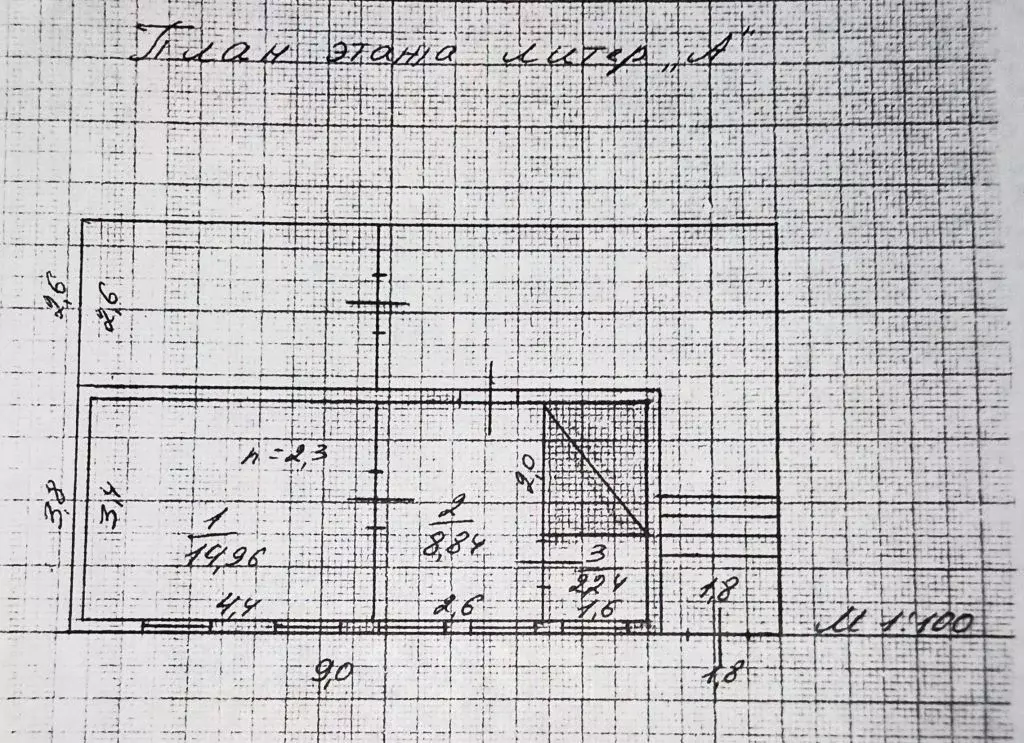 План этажа литер „А"
2,6
2,6
h=2,3
2,0
3,8
3,4
1
14,96
2
8,84
3
2,24
4,4
2,6
1,6
1,8
М 1:100
9,0
1,8